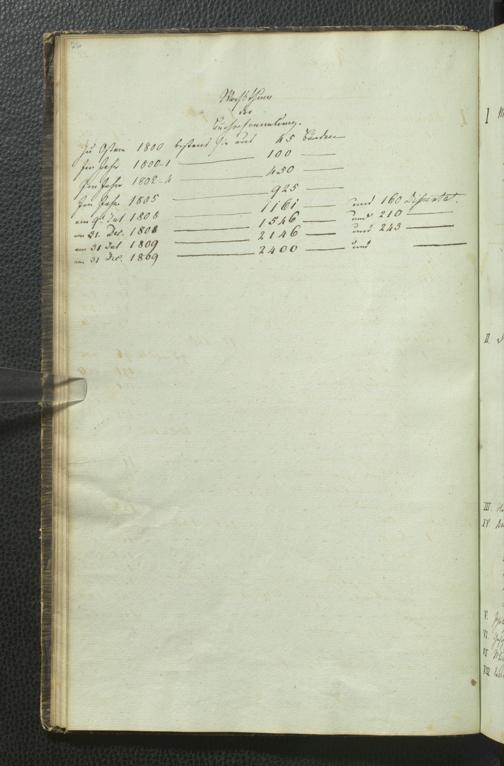 Wachsthum
der
Büchersammlung.
Zu Ostern 1800 bestand sie aus 45 Bänden
Im Jahr 1800-1 — 100 —
Im Jahr 1802-4 — 450 —
Im Jahr 1805 — 925 —
am Jul 1808 — 1161 — und 160 Dissertat.
am 21. Dec. 1808 — 1546 — und 210 —
am 31 Jul 1809 — 2146 — und 243 —
am 31 Dec. 1809 — 2400 — und —
I
II.
III.
IV
V.
VI.
VI
VIII